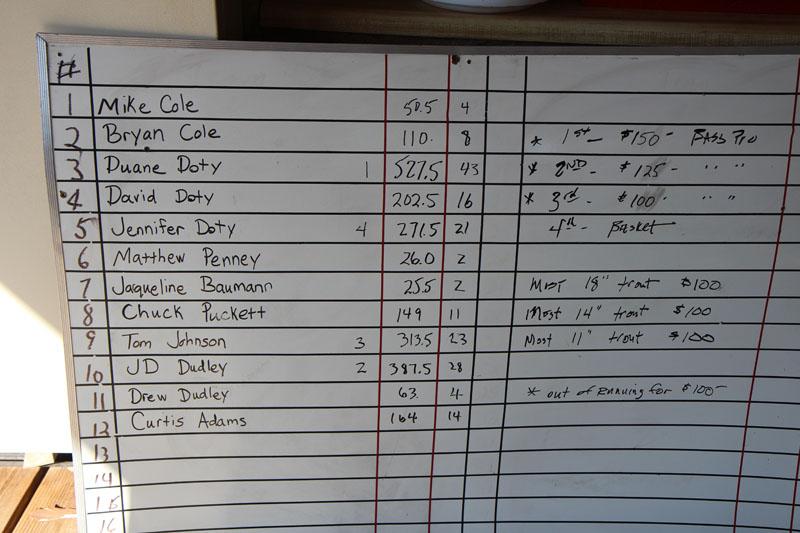 #
1 Mike Cole 50.5 4
2 Bryan Cole 110. 8 * 1st - $150 - BASS Pro
3 Duane Doty 1 527.5 43 * 2ND - $125 - " "
4 David Doty 202.5 16 * 3rd - $100 - " "
5 Jennifer Doty 4 271.5 21 4th - Basket
6 Matthew Penney 26.0 2
7 Jaqueline Baumann 25.5 2 Most 18" trout $100
8 Chuck Puckett 149 11 Most 14" trout $100
9 Tom Johnson 3 313.5 23 Most 11" trout $100
10 JD Dudley 2 387.5 28
11 Drew Dudley 63. 4 * out of Running for $100-
12 Curtis Adams 164 14
13
14
15
16